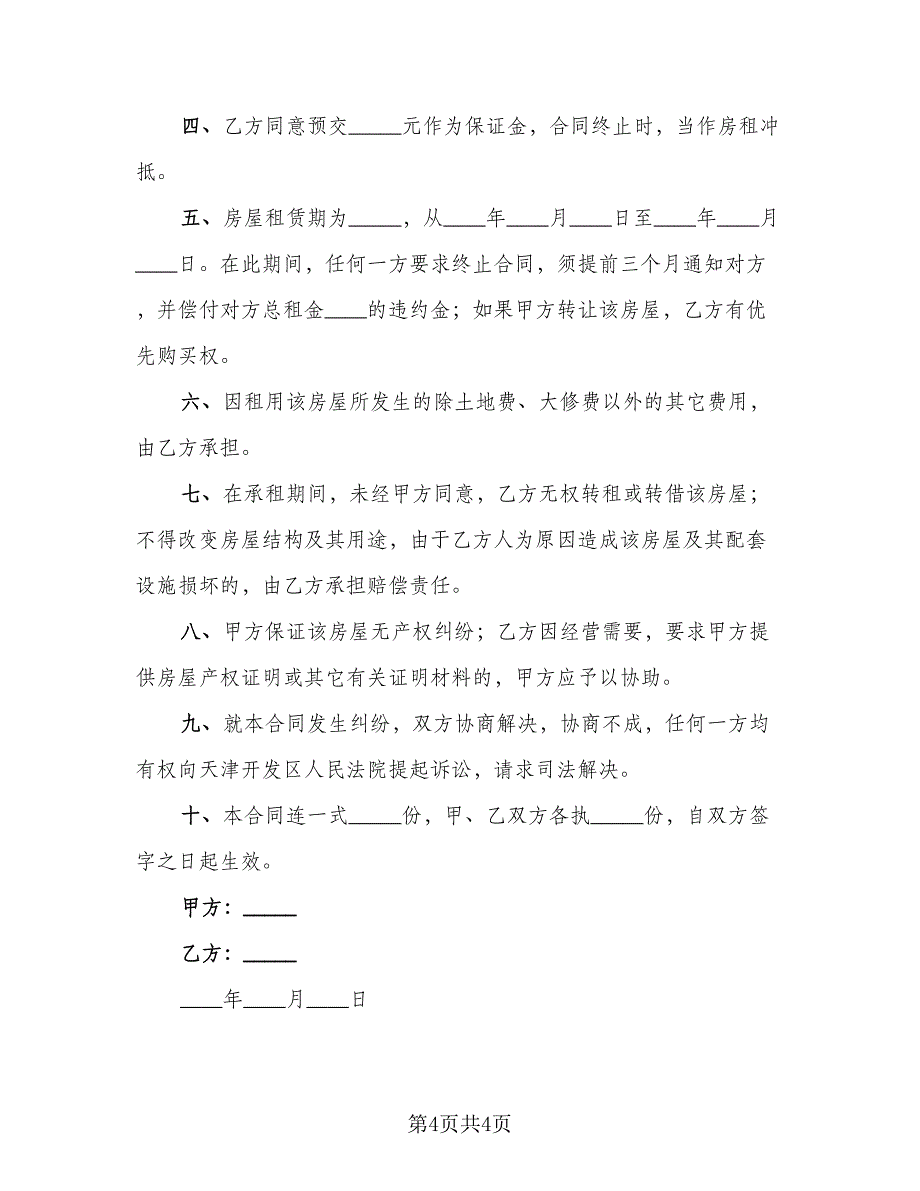 四、乙方同意预交_____元作为保证金，合同终止时，当作房租冲
抵。
五、房屋租赁期为_____，从____年____月____日至____年____月
____日。在此期间，任何一方要求终止合同，须提前三个月通知对方
，并偿付对方总租金____的违约金；如果甲方转让该房屋，乙方有优
先购买权。
六、因租用该房屋所发生的除土地费、大修费以外的其它费用，
由乙方承担。
七、在承租期间，未经甲方同意，乙方无权转租或转借该房屋；
不得改变房屋结构及其用途，由于乙方人为原因造成该房屋及其配套
设施损坏的，由乙方承担赔偿责任。
八、甲方保证该房屋无产权纠纷；乙方因经营需要，要求甲方提
供房屋产权证明或其它有关证明材料的，甲方应予以协助。
九、就本合同发生纠纷，双方协商解决，协商不成，任何一方均
有权向天津开发区人民法院提起诉讼，请求司法解决。
十、本合同连一式_____份，甲、乙双方各执_____份，自双方签
字之日起生效。
甲方：_____
乙方：_____
____年____月____日
第4页共4页